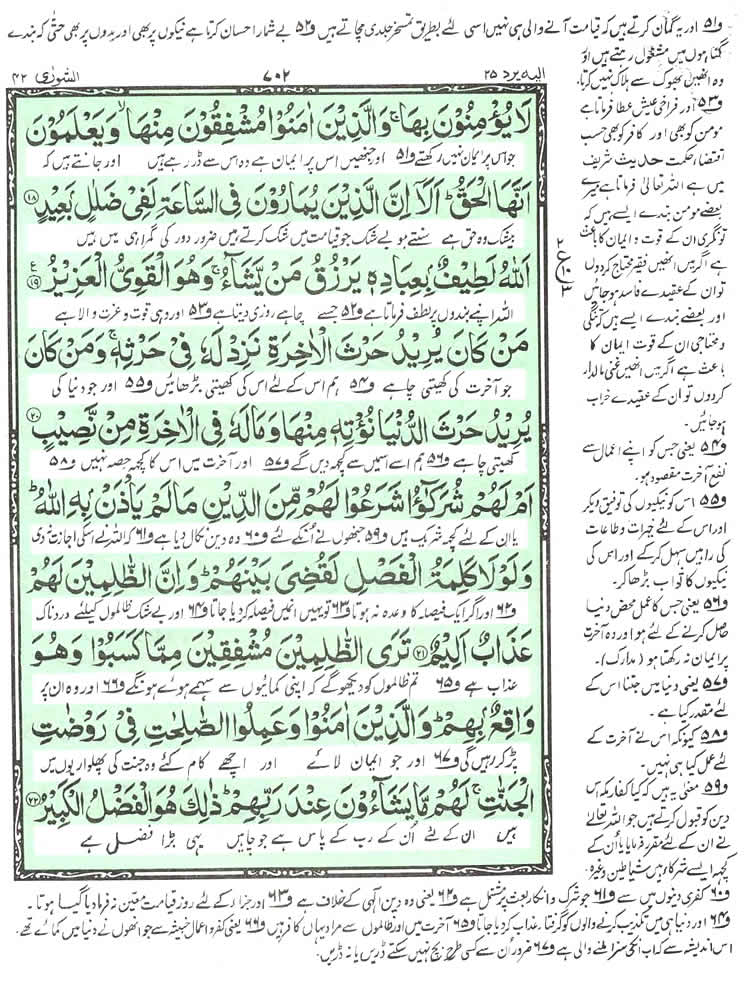 و۵۱ اور یہ گمان کرتے ہیں کہ قیامت آنے والی ہی نہیں اسی لئے بطریق تمسخر جلدی مچاتے ہیں و۵۲ بے شمار احسان کرتا ہے نیکوں پر بھی اور بدوں پر بھی حتّٰی کہ بندے
گناہوں میں مشغول رہتے ہیں اور
وہ انھیں بھوک سے ہلاک نہیں کرتا۔
الیہ یرد ۲۵
۷۰۲
الشورٰی ۴۲
لَا يُؤْمِنُوْنَ بِهَا ۚ وَالَّذِيْنَ اٰمَنُوْا مُشْفِقُوْنَ مِنْهَا ۙ وَيَعْلَمُوْنَ
جو اس پر ایمان نہیں رکھتے و۵۱ اور جنھیں اس پر ایمان ہے وہ اس سے ڈر رہے ہیں اور جانتے ہیں کہ
اَنَّهَا الْحَقُّ ؕ اَلَاۤ اِنَّ الَّذِيْنَ يُمَارُوْنَ فِى السَّاعَةِ لَفِىْ ضَلٰلٍۭ بَعِيْدٍ ۱۸
بیشک وہ حق ہے سنتے ہو بے شک جو قیامت میں شک کرتے ہیں ضرور دور کی گمراہی میں ہیں
اَللّٰهُ لَطِيْفٌۢ بِعِبَادِهٖ يَرْزُقُ مَنْ يَّشَآءُ ۚ وَهُوَ الْقَوِىُّ الْعَزِيْزُ ۱۹
اللہ اپنے بندوں پر لطف فرماتا ہے و۵۲ جسے چاہے روزی دیتا ہے و۵۳ اور وہی قوت و عزت والا ہے
مَنْ كَانَ يُرِيْدُ حَرْثَ الْاٰخِرَةِ نَزِدْ لَهٗ فِىْ حَرْثِهٖ ۚ وَمَنْ كَانَ
جو آخرت کی کھیتی چاہے و۵۴ ہم اس کے لئے اس کی کھیتی بڑھائیں و۵۵ اور جو دنیا کی
يُرِيْدُ حَرْثَ الدُّنْيَا نُؤْتِهٖ مِنْهَا وَمَا لَهٗ فِى الْاٰخِرَةِ مِنْ نَّصِيْبٍ ۲۰
کھیتی چاہے و۵۶ ہم اسے اسمیں سے کچھ دیں گے و۵۷ اور آخرت میں اس کا کچھ حصہ نہیں و۵۸
اَمْ لَهُمْ شُرَكٰٓؤُا شَرَعُوْا لَهُمْ مِّنَ الدِّيْنِ مَا لَمْ يَاْذَنْۢ بِهِ اللّٰهُ ؕ
یا ان کے لئے کچھ شریک ہیں و۵۹ جنھوں نے اُنکے لئے و۶۰ وہ دین نکال دیا ہے و۶۱ کہ اللہ نے اسکی اجازت نہ دی
وَلَوْلَا كَلِمَةُ الْفَصْلِ لَقُضِىَ بَيْنَهُمْ ؕ وَاِنَّ الظّٰلِمِيْنَ لَهُمْ
و۶۲ اور اگر ایک فیصلہ کا وعدہ نہ ہوتا و۶۳ تو یہیں انمیں فیصلہ کر دیا جاتا و۶۴ اور بے شک ظالموں کیلئے دردناک
عَذَابٌ اَلِيْمٌ ۲۱ تَرَى الظّٰلِمِيْنَ مُشْفِقِيْنَ مِمَّا كَسَبُوْا وَهُوَ
عذاب ہے و۶۵ تم ظالموں کو دیکھو گے کہ اپنی کمائیوں سے سہمے ہوئے ہونگے و۶۶ اور وہ ان پر
وَاقِعٌۢ بِهِمْ ؕ وَالَّذِيْنَ اٰمَنُوْا وَعَمِلُوا الصّٰلِحٰتِ فِىْ رَوْضٰتِ
پڑ کر رہیں گی و۶۷ اور جو ایمان لائے اور اچھے کام کئے وہ جنت کی پھلواریوں میں
الْجَنّٰتِ ۚ لَهُمْ مَّا يَشَآءُوْنَ عِنْدَ رَبِّهِمْ ؕ ذٰلِكَ هُوَ الْفَضْلُ الْكَبِيْرُ ۲۲
ہیں ان کے لئے اُن کے رب کے پاس ہے جو چاہیں یہی بڑا فضل ہے
و۵۳ اور فراخی عیش عطا فرماتا ہے
مومن کو بھی اور کافر کو بھی حسب
اقتضاء حکمت حدیث شریف
میں ہے اللہ تعالیٰ فرماتا ہے میرے
بعضے مومن بندے ایسے ہیں کہ
تونگری ان کے قوت و ایمان کا باعث
ہے اگر میں انھیں فقیر محتاج کر دوں
تو ان کے عقیدے فاسد ہو جائیں
اور بعضے بندے ایسے ہیں کہ تنگی
و محتاجی ان کے قوت ایمان کا
باعث ہے اگر میں انھیں غنی مالدار
کر دوں تو ان کے عقیدے خراب
ہو جائیں۔
۲
ع
۱۰
۳
و۵۴ یعنی جس کو اپنے اعمال سے
نفع آخرت مقصود ہو۔
و۵۵ اس کو نیکیوں کی توفیق دیکر
اور اس کے لئے خیرات و طاعات
کی راہیں سہل کرکے اور اس کی
نیکیوں کا ثواب بڑھا کر۔
و۵۶ یعنی جس کا عمل محض دنیا
حاصل کرنے کے لئے ہو اور وہ آخرت
پر ایمان نہ رکھتا ہو (مدارک)۔
و۵۷ یعنی دنیا میں جتنا اس کے
لئے مقدر کیا ہے۔
و۵۸ کیونکہ اس نے آخرت کے
لئے عمل کیا ہی نہیں۔
و۵۹ معنی یہ ہیں کہ کیا کفار مکہ اس
دین کو قبول کرتے ہیں جو اللہ تعالےٰ
نے ان کے لئے مقرر فرمایا یا اُن کے
کچھ ایسے شرکا ہیں شیاطین وغیرہ
و۶۰ کفری دینوں میں سے و۶۱ جو شرک و انکار بعث پر مشتمل ہے و۶۲ یعنی وہ دین الٰہی کے خلاف ہے و۶۳ اور جزاء کے لئے روز قیامت معین نہ فرما دیا گیا ہوتا۔
و۶۴ اور دنیا ہی میں تکذیب کرنے والوں کو گرفتار عذاب کر دیا جاتا و۶۵ آخرت میں اور ظالموں سے مراد یہاں کافر ہیں و۶۶ یعنی کفر و اعمال خبیثہ سے جو انھوں نے دنیا میں کمائے تھے۔
اس اندیشہ سے کہ اب انکی سزا ملنے والی ہے و۶۷ ضرور اُن سے کسی طرح بچ نہیں سکتے ڈریں یا نہ ڈریں۔